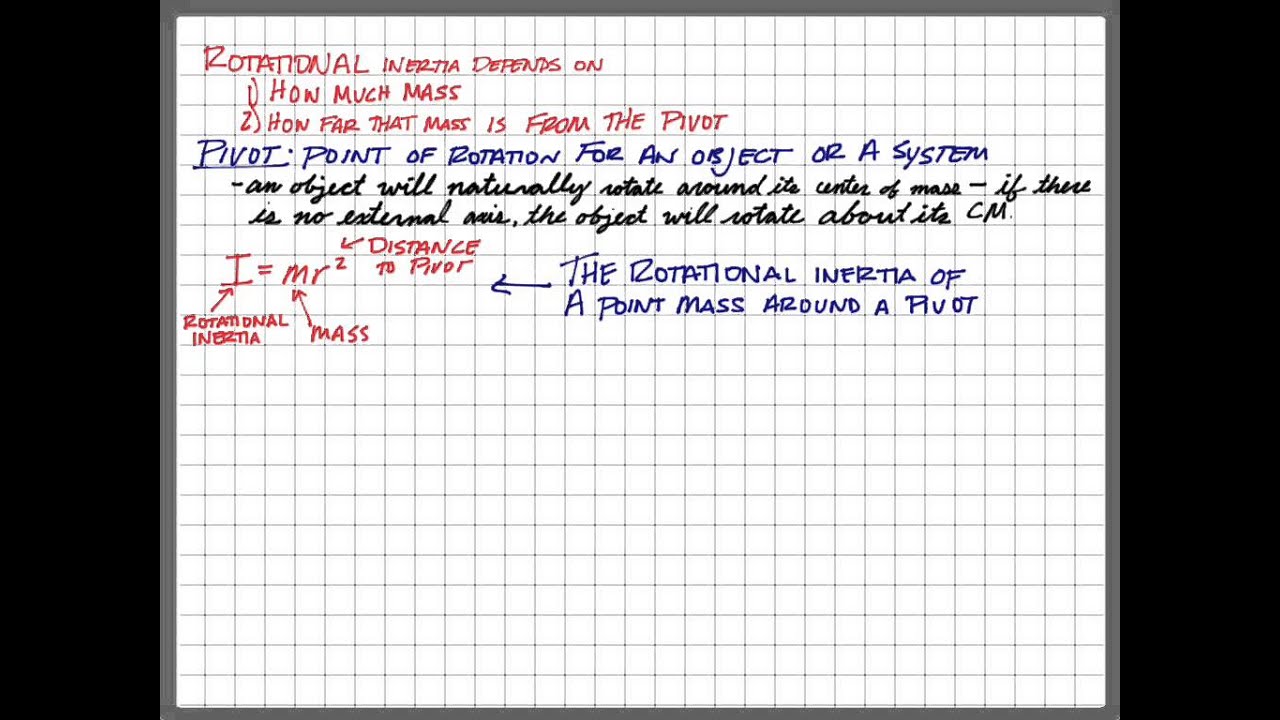 ROTATIONAL INERTIA DEPENDS ON
1) HOW MUCH MASS
2) HOW FAR THAT MASS IS FROM THE PIVOT
PIVOT: POINT OF ROTATION FOR AN OBJECT OR A SYSTEM
- an object will naturally rotate around its center of mass - if there
is no external axis, the object will rotate about its CM.
DISTANCE
TO PIVOT
I = mr²
ROTATIONAL
INERTIA
MASS
THE ROTATIONAL INERTIA OF
A POINT MASS AROUND A PIVOT